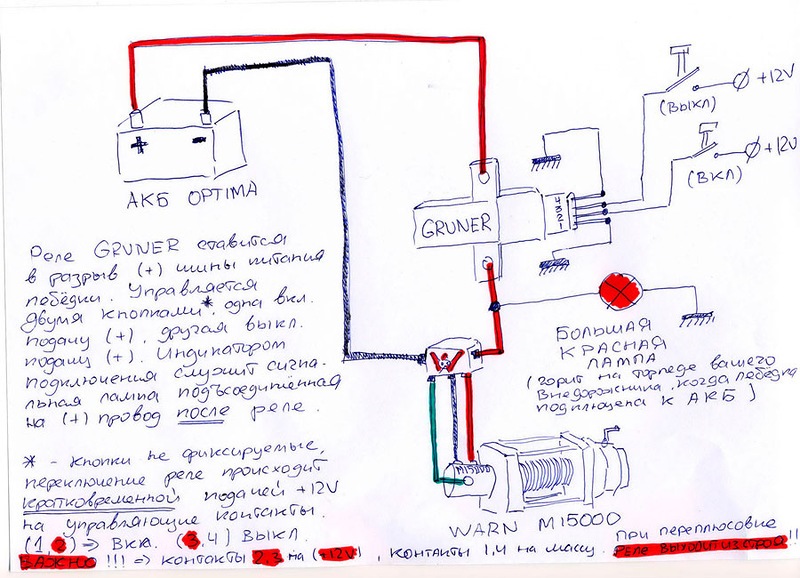 (ВЫКЛ)
+12V
(ВКЛ)
+12V
АКБ OPTIMA
GRUNER
4321
Реле GRUNER ставится
в разрыв (+) шины питания
лебёдки. Управляется
двумя кнопками*, одна вкл.
подачу (+), другая выкл.
подачу (+). Индикатором
подключения служит сигна.
льная лампа подъсоединённая
на (+) провод после реле.
БОЛЬШАЯ
КРАСНАЯ
ЛАМПА
(горит на торпеде вашего
внедорожника, когда лебёдка
подключена к АКБ)
W
M15000
WARN M15000
* - кнопки не фиксируемые,
переключение реле происходит
кратковременной подачей +12V
на управляющие контакты.
(1,2) => ВКЛ. (3,4) ВЫКЛ.
ВАЖНО !!! => контакты 2,3 на (+12V), контакты 1,4 на массу. При переплюсовке
реле выходит из строя!!